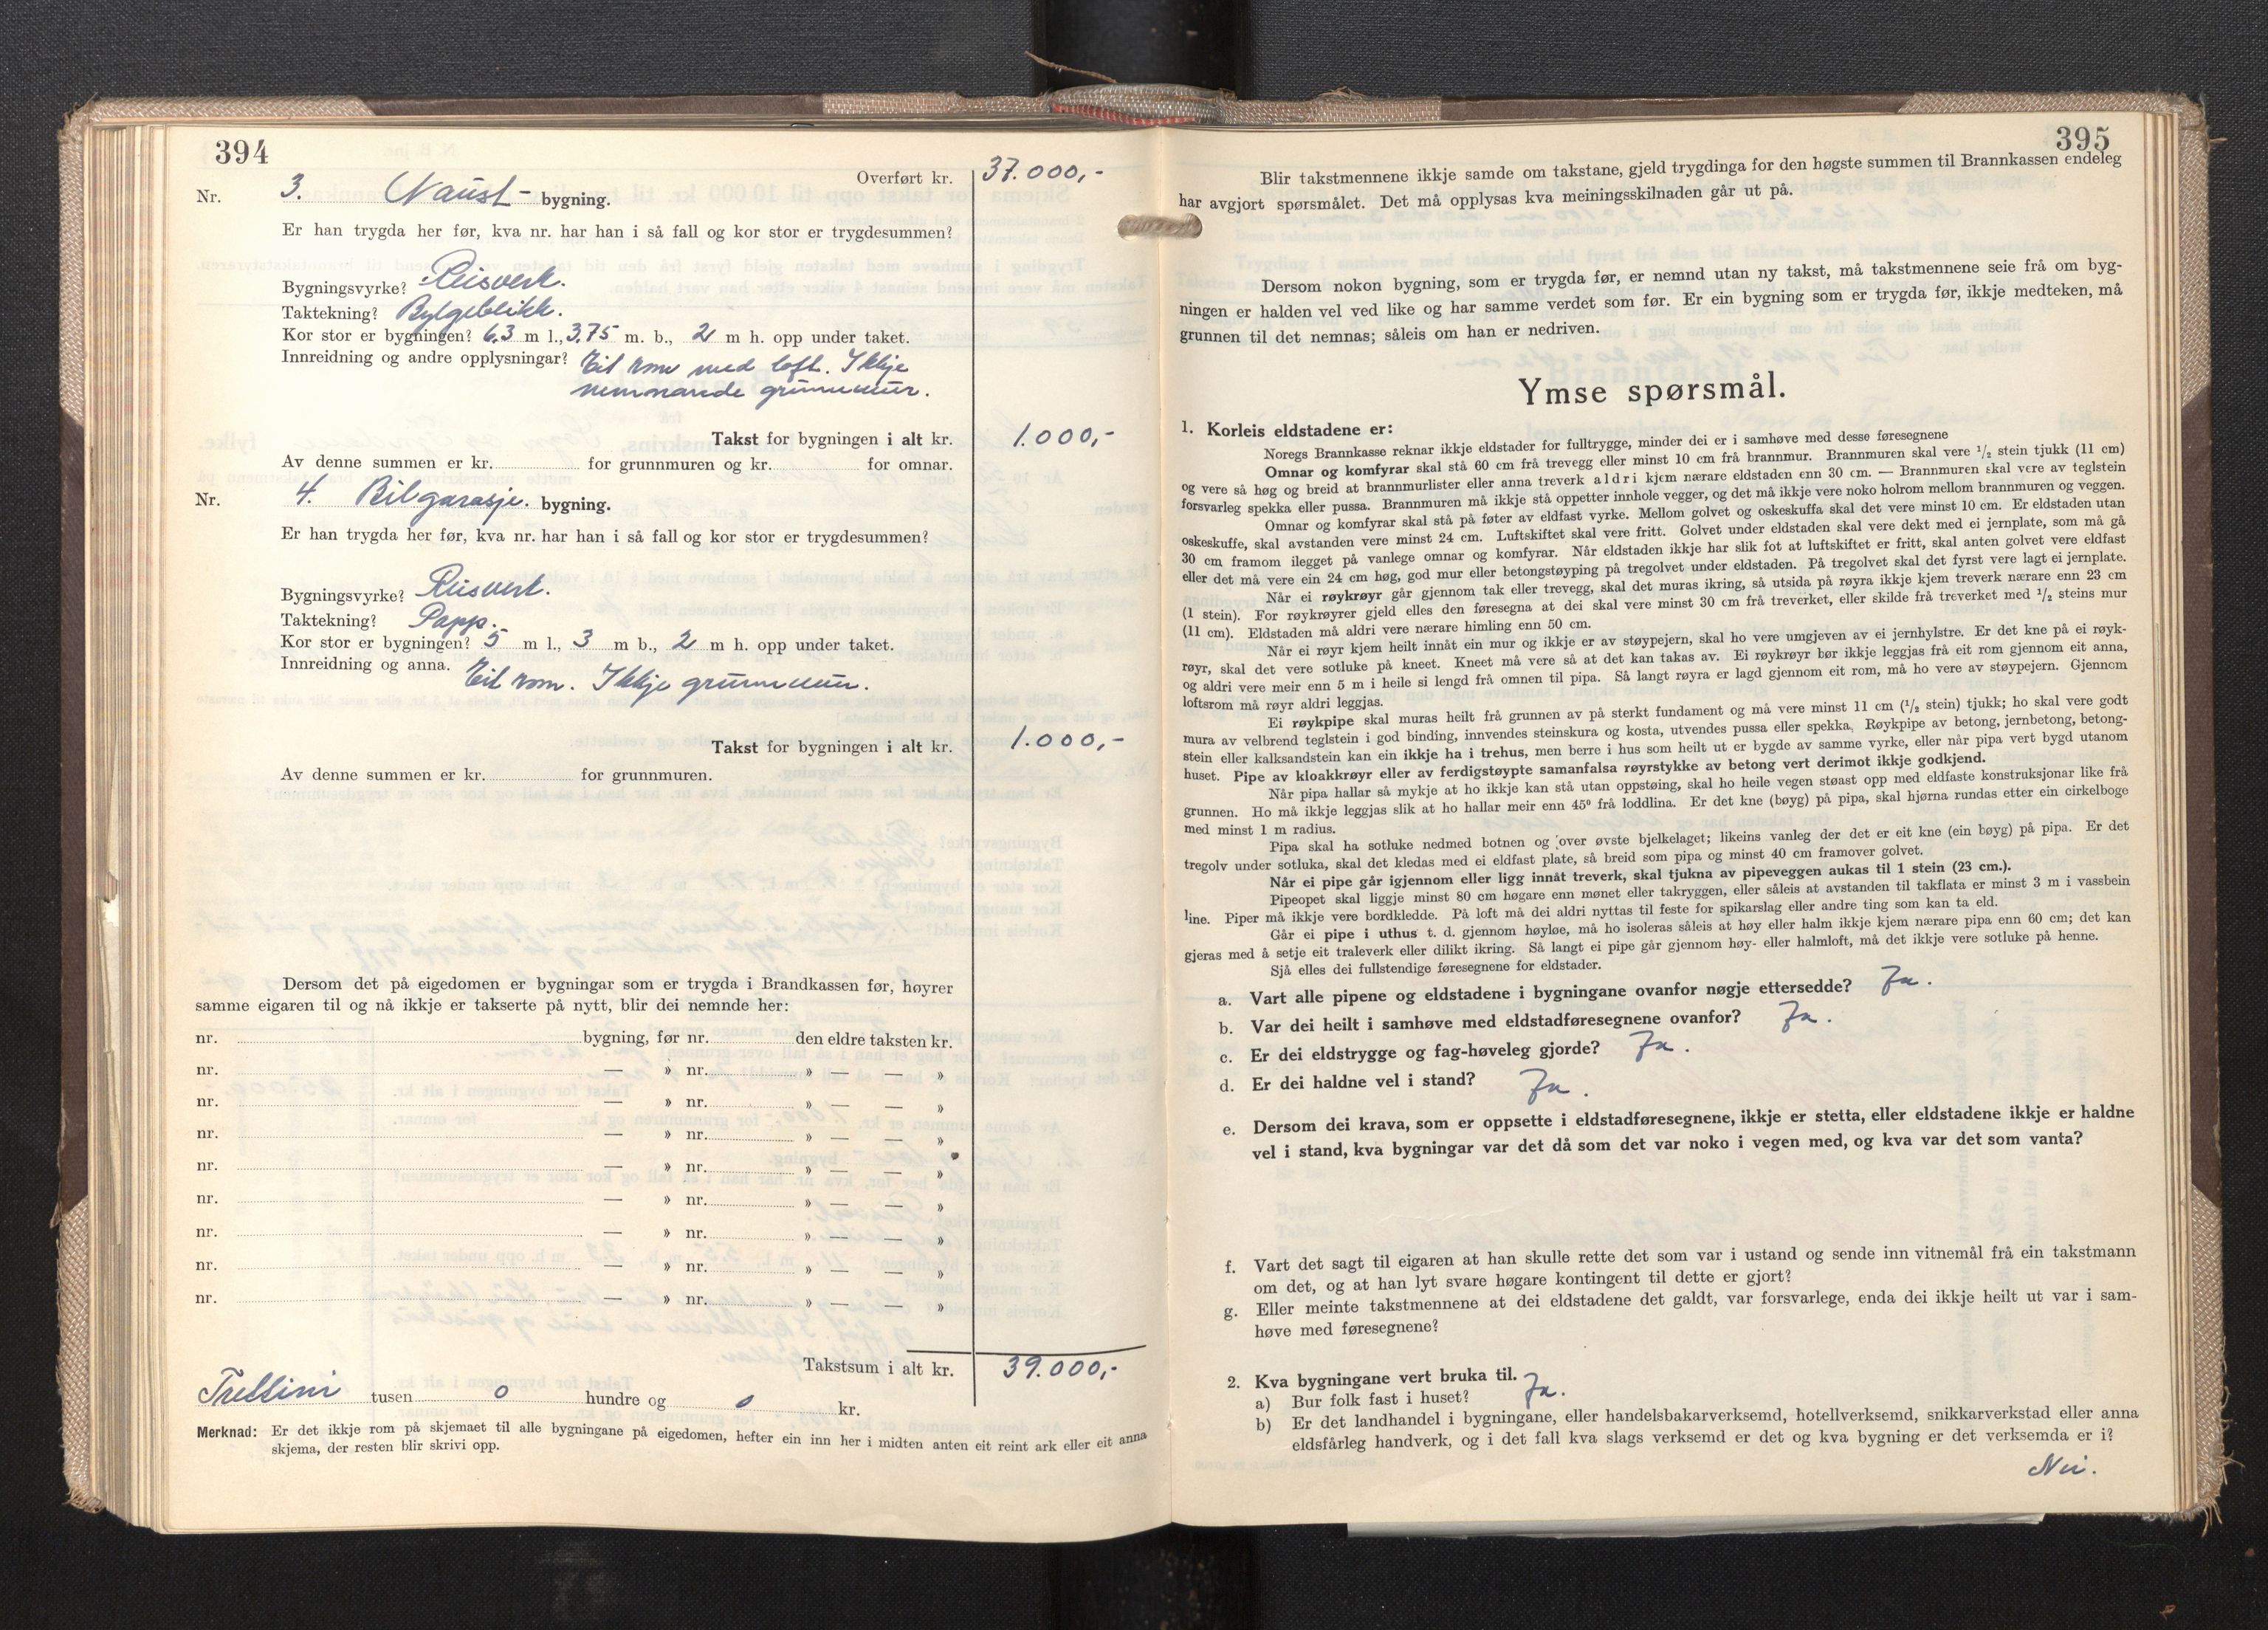 394
Overført kr. 37.000,-
Nr. 3. Naust- bygning.
Er han trygda her før, kva nr. har han i så fall og kor stor er trygdesummen?
Bygningsvyrke? Reisverk.
Taktekning? Bylgeblikk.
Kor stor er bygningen? 6.3 m l., 3.75 m. b., 2 m h. opp under taket.
Innreidning og andre opplysningar? Eit rom med loft. Ikkje
nemnande grunnmur.
Takst for bygningen i alt kr. 1.000,-
Av denne summen er kr. for grunnmuren og kr. for omnar.
Nr. 4. Bilgarasje. bygning.
Er han trygda her før, kva nr. har han i så fall og kor stor er trygdesummen?
Bygningsvyrke? Reisverk.
Taktekning? Papp.
Kor stor er bygningen? 5 m l., 3 m b., 2 m h. opp under taket.
Innreidning og anna. Eit rom. Ikkje grunnmur.
Takst for bygningen i alt kr. 1.000,-
Av denne summen er kr. for grunnmuren.
Dersom det på eigedomen er bygningar som er trygda i Brandkassen før, høyrer
samme eigaren til og nå ikkje er takserte på nytt, blir dei nemnde her:
nr. bygning, før nr. den eldre taksten kr.
nr. — » nr. » — — »
nr. — » nr. » — — »
nr. — » nr. » — — »
nr. — » nr. » — — »
nr. — » nr. » — — »
nr. — » nr. » — — »
nr. — » nr. » — — »
nr. — » nr. » — — »
Takstsum i alt kr. 39.000,-
Trettini tusen 0 hundre og 0 kr.
Merknad: Er det ikkje rom på skjemaet til alle bygningane på eigedomen, hefter ein inn her i midten anten eit reint ark eller eit anna
skjema, der resten blir skrivi opp.
395
Blir takstmennene ikkje samde om takstane, gjeld trygdinga for den høgste summen til Brannkassen endeleg
har avgjort spørsmålet. Det må opplysas kva meiningsskilnaden går ut på.
Dersom nokon bygning, som er trygda før, er nemnd utan ny takst, må takstmennene seie frå om byg-
ningen er halden vel ved like og har samme verdet som før. Er ein bygning som er trygda før, ikkje medteken, må
grunnen til det nemnas; såleis om han er nedriven.
Ymse spørsmål.
1. Korleis eldstadene er:
Noregs Brannkasse reknar ikkje eldstader for fulltrygge, minder dei er i samhøve med desse føresegnene
Omnar og komfyrar skal stå 60 cm frå trevegg eller minst 10 cm frå brannmur. Brannmuren skal vere 1/2 stein tjukk (11 cm)
og vere så høg og breid at brannmurlister eller anna treverk aldri kjem nærare eldstaden enn 30 cm. — Brannmuren skal vere av teglstein
forsvarleg spekka eller pussa. Brannmuren må ikkje stå oppetter innhole vegger, og det må ikkje vere noko holrom mellom brannmuren og veggen.
Omnar og komfyrar skal stå på føter av eldfast vyrke. Mellom golvet og oskeskuffa skal det vere minst 10 cm. Er eldstaden utan
oskeskuffe, skal avstanden vere minst 24 cm. Luftskiftet skal vere fritt. Golvet under eldstaden skal vere dekt med ei jernplate, som må gå
30 cm framom ilegget på vanlege omnar og komfyrar. Når eldstaden ikkje har slik fot at luftskiftet er fritt, skal anten golvet vere eldfast
eller det må vere ein 24 cm høg, god mur eller betongstøyping på tregolvet under eldstaden. På tregolvet skal det fyrst vere lagt ei jernplate.
Når ei røykrøyr går gjennom tak eller trevegg, skal det muras ikring, så utsida på røyra ikkje kjem treverk nærare enn 23 cm
(1 stein). For røykrøyrer gjeld elles den føresegna at dei skal vere minst 30 cm frå treverket, eller skilde frå treverket med 1/2 steins mur
(11 cm). Eldstaden må aldri vere nærare himling enn 50 cm.
Når ei røyr kjem heilt innåt ein mur og ikkje er av støypejern, skal ho vere umgjeven av ei jernhylstre. Er det kne på ei røyk-
røyr, skal det vere sotluke på kneet. Kneet må vere så at det kan takas av. Ei røykrøyr bør ikkje leggjas frå eit rom gjennom eit anna,
og aldri vere meir enn 5 m i heile si lengd frå omnen til pipa. Så langt røyra er lagd gjennom eit rom, må ho vere av støypejern. Gjennom
loftsrom må røyr aldri leggjas.
Ei røykpipe skal muras heilt frå grunnen av på sterkt fundament og må vere minst 11 cm (1/2 stein) tjukk; ho skal vere godt
mura av velbrend teglstein i god binding, innvendes steinskura og kosta, utvendes pussa eller spekka. Røykpipe av betong, jernbetong, betong-
stein eller kalksandstein kan ein ikkje ha i trehus, men berre i hus som heilt ut er bygde av samme vyrke, eller når pipa vert bygd utanom
huset. Pipe av kloakkrøyr eller av ferdigstøypte samanfalsa røyrstykke av betong vert derimot ikkje godkjend.
Når pipa hallar så mykje at ho ikkje kan stå utan oppstøing, skal ho heile vegen støast opp med eldfaste konstruksjonar like frå
grunnen. Ho må ikkje leggjas slik at ho hallar meir enn 45° frå loddlina. Er det kne (bøyg) på pipa, skal hjørna rundas etter ein cirkelboge
med minst 1 m radius.
Pipa skal ha sotluke nedmed botnen og over øvste bjelkelaget; likeins vanleg der det er eit kne (ein bøyg) på pipa. Er det
tregolv under sotluka, skal det kledas med ei eldfast plate, så breid som pipa og minst 40 cm framover golvet.
Når ei pipe går igjennom eller ligg innåt treverk, skal tjukna av pipeveggen aukas til 1 stein (23 cm.).
Pipeopet skal liggje minst 80 cm høgare enn mønet eller takryggen, eller såleis at avstanden til takflata er minst 3 m i vassbein
line. Piper må ikkje vere bordkledde. På loft må dei aldri nyttas til feste for spikarslag eller andre ting som kan ta eld.
Går ei pipe i uthus t. d. gjennom høyløe, må ho isoleras såleis at høy eller halm ikkje kjem nærare pipa enn 60 cm; det kan
gjeras med å setje eit traleverk eller dilikt ikring. Så langt ei pipe går gjennom høy- eller halmloft, må det ikkje vere sotluke på henne.
Sjå elles dei fullstendige føresegnene for eldstader.
a. Vart alle pipene og eldstadene i bygningane ovanfor nøgje ettersedde? Ja.
b. Var dei heilt i samhøve med eldstadføresegnene ovanfor? Ja.
c. Er dei eldstrygge og fag-høveleg gjorde? Ja.
d. Er dei haldne vel i stand? Ja.
e. Dersom dei krava, som er oppsette i eldstadføresegnene, ikkje er stetta, eller eldstadene ikkje er haldne
vel i stand, kva bygningar var det då som det var noko i vegen med, og kva var det som vanta?
f. Vart det sagt til eigaren at han skulle rette det som var i ustand og sende inn vitnemål frå ein takstmann
om det, og at han lyt svare høgare kontingent til dette er gjort?
g. Eller meinte takstmennene at dei eldstadene det galdt, var forsvarlege, enda dei ikkje heilt ut var i sam-
høve med føresegnene?
2. Kva bygningane vert bruka til.
a) Bur folk fast i huset? Ja.
b) Er det landhandel i bygningane, eller handelsbakarverksemd, hotellverksemd, snikkarverkstad eller anna
eldsfårleg handverk, og i det fall kva slags verksemd er det og kva bygning er det verksemda er i?
Nei.